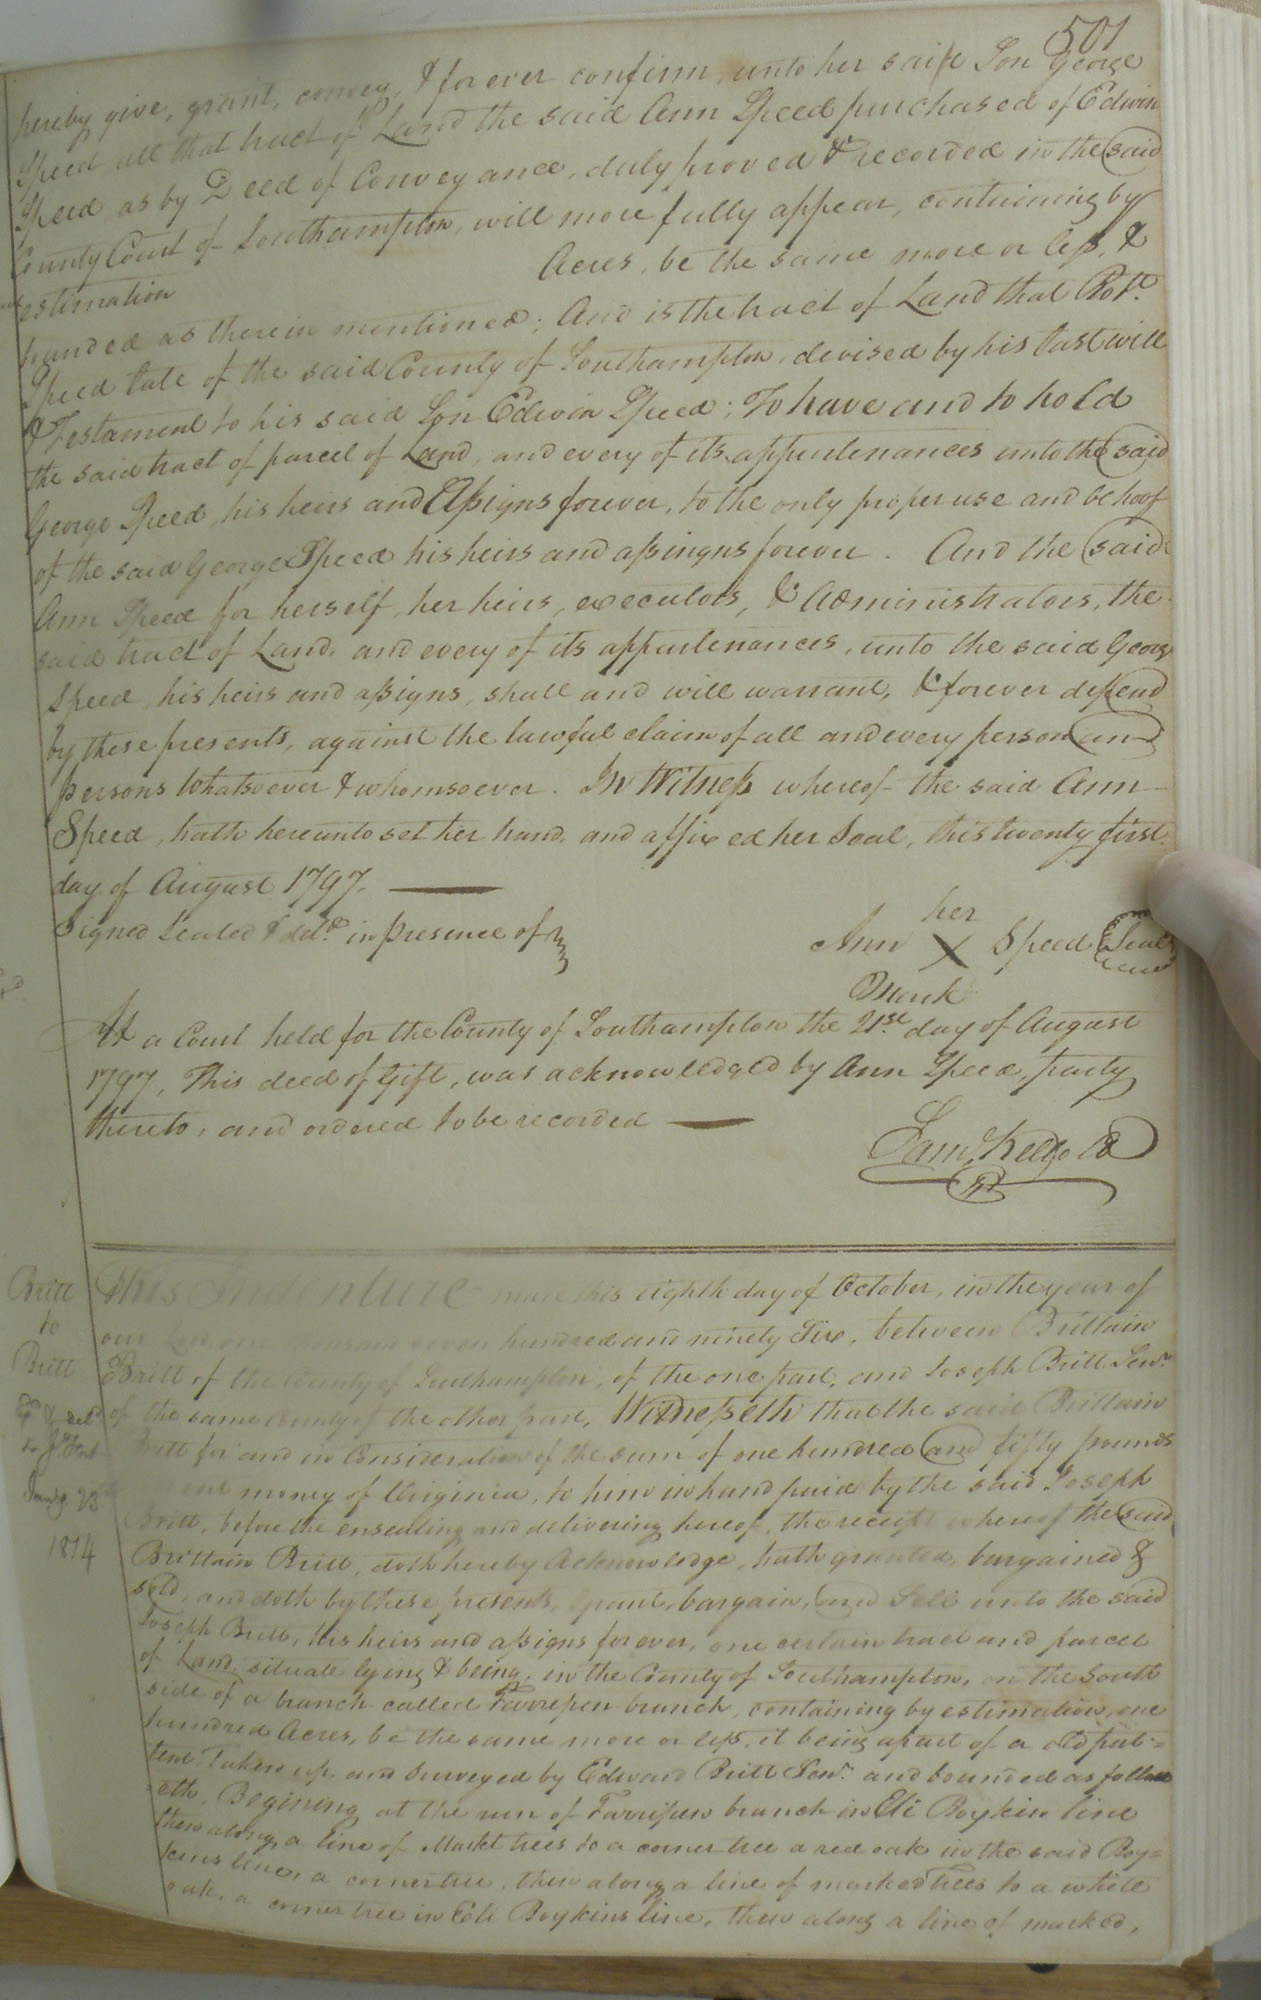 501
hereby give, grant, convey, & forever confirm, unto her said Son George
Speed all that tract of Land the said Ann Speed purchased of Edwin
Speed, as by Deed of Conveyance, duly proved & recorded in the said
County Court of Southampton, will more fully appear, containing by
estimation Acres, be the same more or less, &
bounded as therein mentioned; And is the tract of Land that Robt.
Speed late of the said County of Southampton, devised by his last will
& Testament to his said Son Edwin Speed; To have and to hold
the said tract of parcel of Land, and every of its appurtenances unto the said
George Speed, his heirs and Assigns forever, to the only proper use and behoof
of the said George Speed his heirs and assingns forever. And the said
Ann Speed for herself, her heirs, executors, & Administrators, the
said tract of Land, and every of its appurtenances, unto the said George
Speed, his heirs and assigns, shall and will warrant, & forever defend
by these presents, against the lawful claim of all and every person and
persons Whatsoever & whomsoever. In Witness whereof the said Ann
Speed, hath hereunto set her hand, and affixed her Seal, this twenty first
day of August 1797.
Signed Sealed & deld. in presence of
her
Ann X Speed Seal
Mark
At a Court held for the County of Southampton the 21st. day of August
1797, This deed of Gift, was acknowledged by Ann Speed, party
thereto, and ordered to be recorded
Saml. Kello
Britt
to
Britt
Jany. 23
1814
This Indenture made this eighth day of October, in the year of
our Lord one thousand seven hundred and ninety Six, between Brittain
Britt of the County of Southampton, of the one part, and Joseph Britt Senr.
of the same County of the other part, Witnesseth that the said Brittain
Britt for and in Consideration of the sum of one hundred and fifty pounds
money of Virginia, to him in hand paid by the said Joseph
Britt, before the ensealing and delivering hereof, the receipt whereof the said
Brittain Britt, doth hereby Acknowledge, hath granted, bargained &
sold, and doth by these presents, grant, bargain, and Sell unto the said
Joseph Britt, his heirs and assigns forever, one certain tract and parcel
of Land, situate lying & being, in the County of Southampton, on the South
side of a branch called Farrepen branch, containing by estimation, one
hundred Acres, be the same more or less, it being a part of a old pat-
tent, Taken up and Surveyed by Edward Britt Senr. and bounded as follow
eth, Begining at the run of Farripen branch in Eli Boykin line
then along a line of Markt trees to a corner tree a red oak in the said Boy=
kins line, a corner tree, then along a line of marked Trees to a white
oak, a corner tree in Eli Boykins line, then along a line of marked,